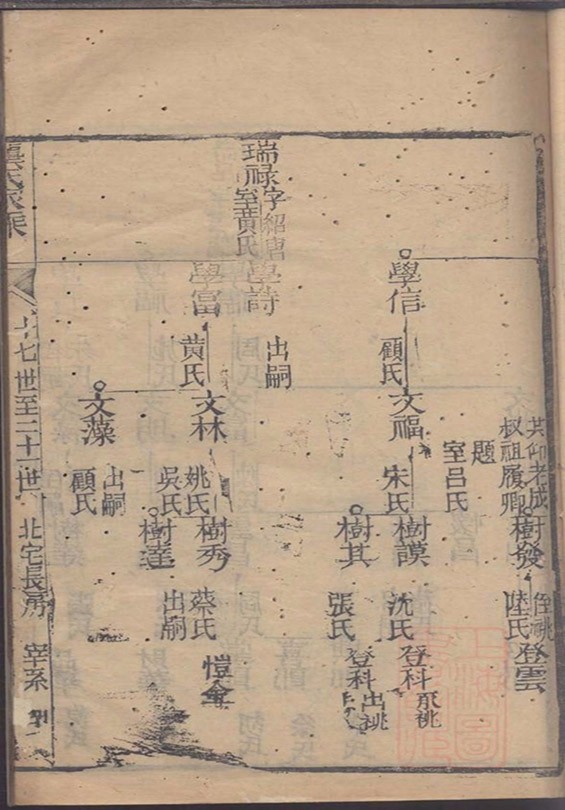 共仰老成
叔祖履卿
題
室呂氏
樹發
侄祧
陸氏
登雲
學信
顧氏
文福
宋氏
樹謨
沈氏
登科
承祧
樹其
張氏
登科
出祧
瑞祿字紹唐
室黃氏
學詩
出嗣
學富
黃氏
文林
姚氏
吳氏
樹秀
蔡氏
愷金
樹達
出嗣
文藻
出嗣
顧氏
氏家乘
七世至二十一世
北宅長房
宰系